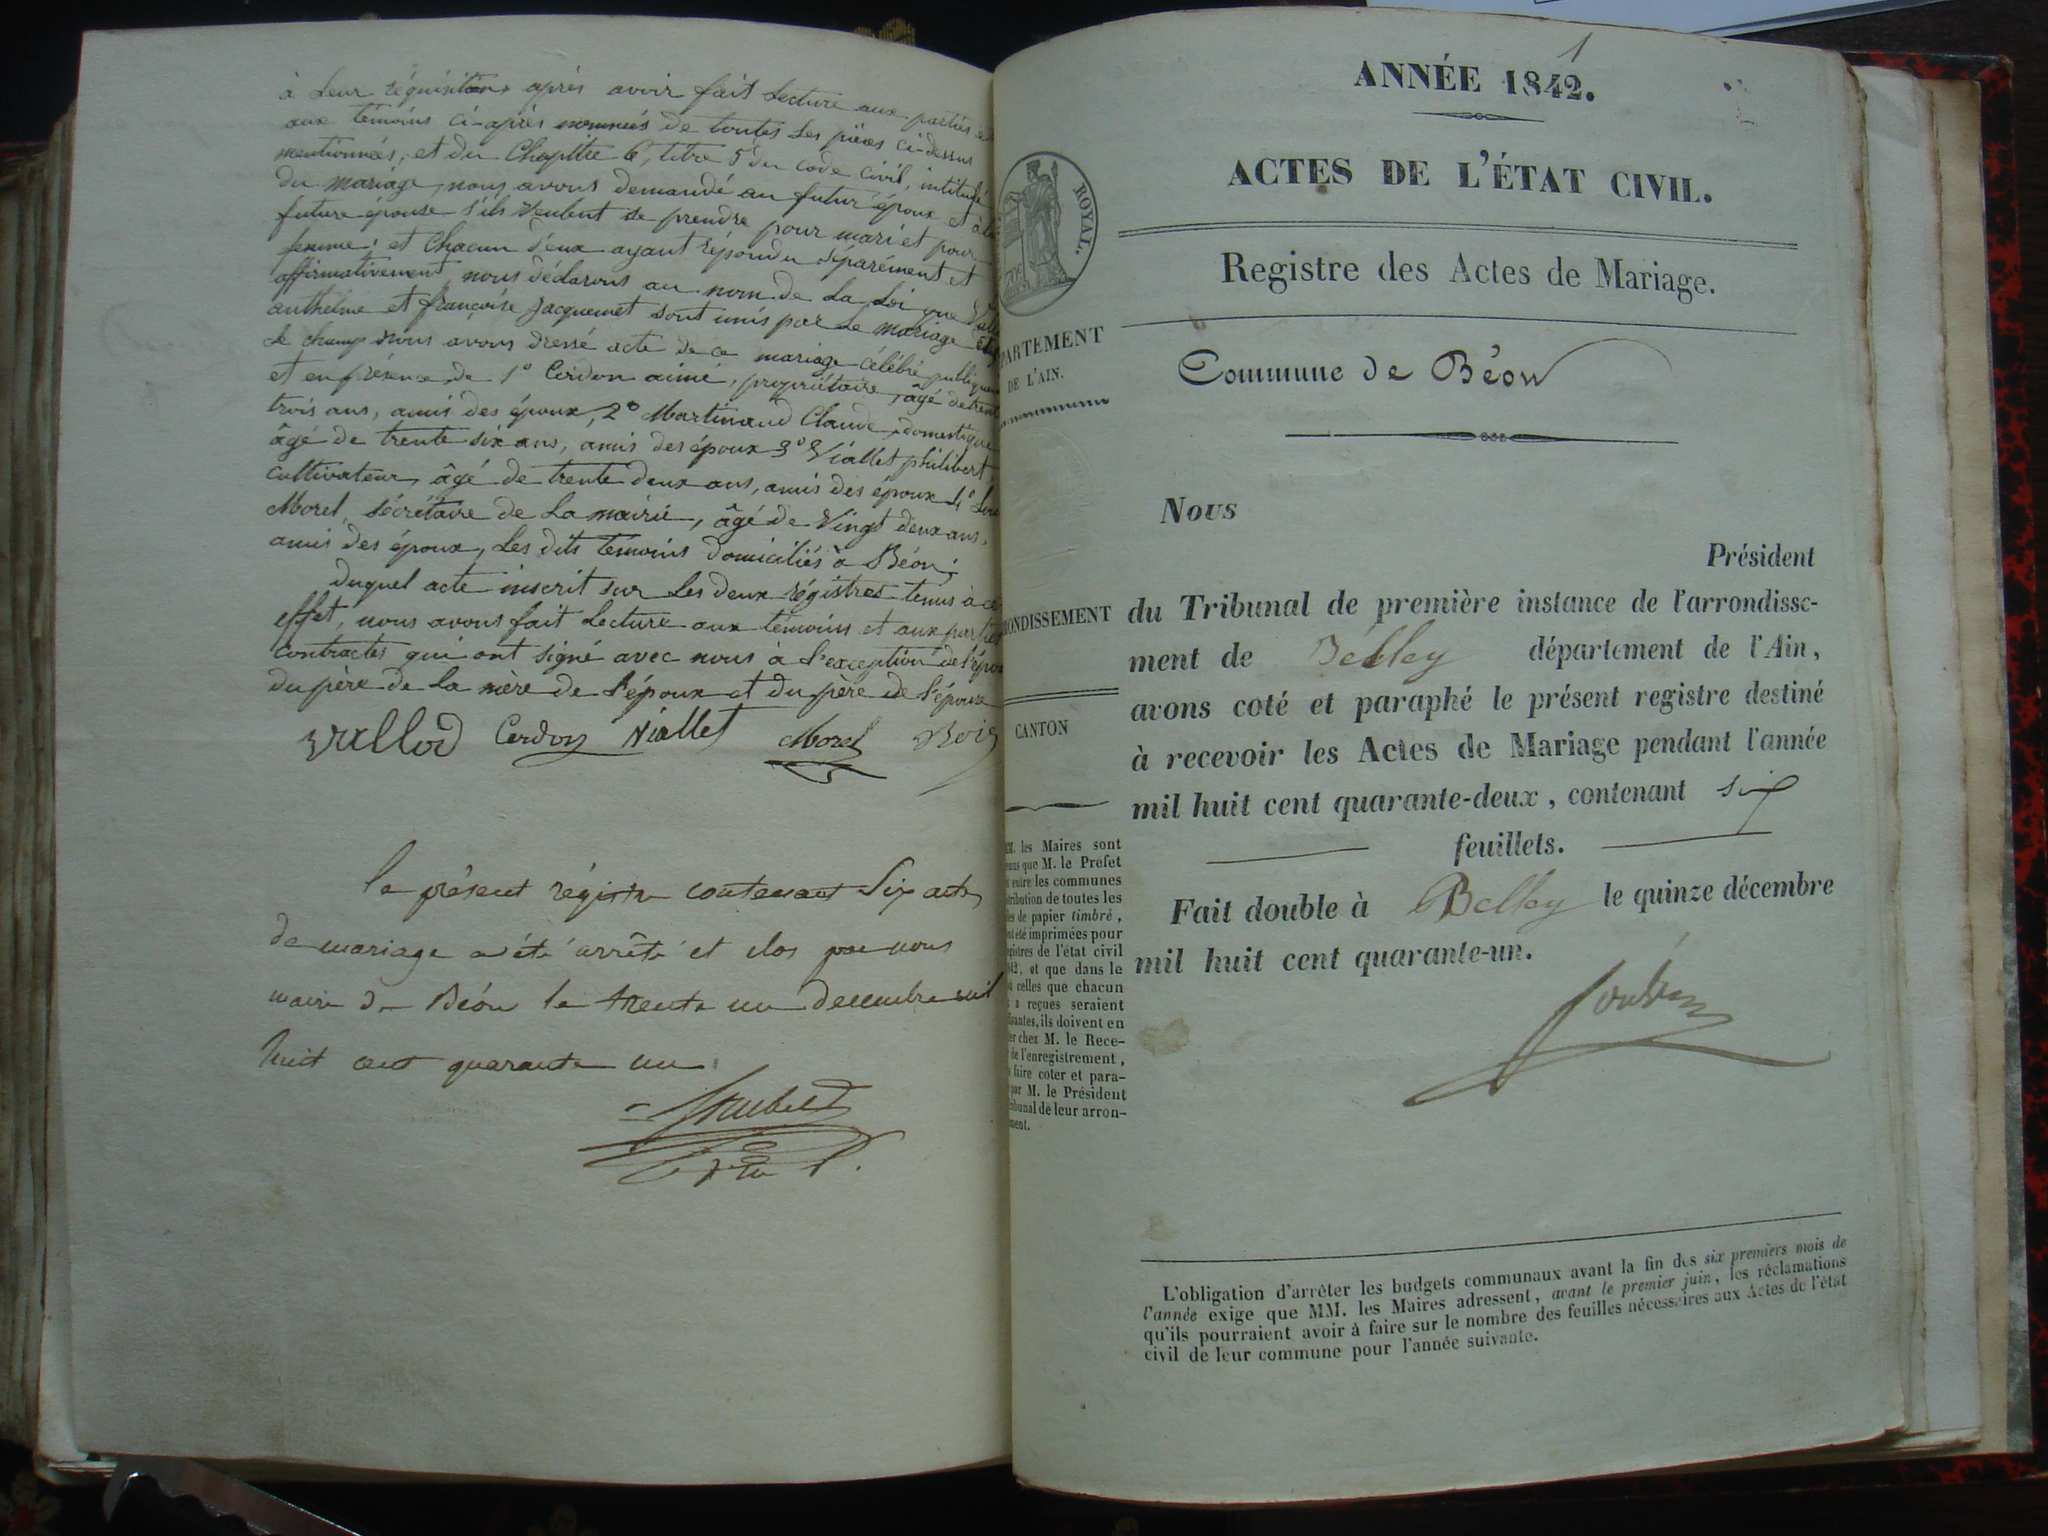 à leur réquisition, après avoir fait lecture aux parties et
aux témoins ci-après nommés de toutes les pièces ci-dessus
mentionnées, et du Chapitre 6, titre 5 du code civil, intitulé
du mariage, nous avons demandé au futur époux et à la
future épouse s'ils veulent se prendre pour mari et pour
femme; et chacun d'eux ayant répondu séparément et
affirmativement, nous déclarons au nom de la loi que
anthelme et françoise jacquemet sont unis par le mariage
le champ nous avons dressé acte de ce mariage célébré
et en présence de 1° Cerdon aimé, propriétaire, âgé de
trois ans, amis des époux, 2° Martinaud Claude, domestique
âgé de trente six ans, amis des époux 3° Viallet philibert
cultivateur, âgé de trente deux ans, amis des époux 4°
Morel, sécrétaire de la mairie, âgé de vingt deux ans,
amis des époux, les dits témoins domiciliés à Béon;
duquel acte inscrit sur les deux régistres tenus à ce
effet, nous avons fait lecture aux témoins et aux
contractes qui ont signé avec nous à l'exception de
du père de la mère de l'époux et du père de l'épouse
Vallod Cerdon Viallet Morel
le présent régistre contenant six actes
de mariage a été arrêté et clos par nous
maire de Béon le trente un decembre mil
huit cent quarante un
1
ANNÉE 1842.
ACTES DE L'ÉTAT CIVIL.
Registre des Actes de Mariage.
ROYAL.
PARTEMENT
DE L'AIN.
Commune de Béon
Nous
Président
ONDISSEMENT
du Tribunal de première instance de l'arrondisse-
ment de Bélley département de l'Ain,
avons coté et paraphé le présent registre destiné
CANTON
à recevoir les Actes de Mariage pendant l'année
mil huit cent quarante-deux, contenant six
feuillets.
Fait double à Belley le quinze décembre
mil huit cent quarante-un.
M. les Maires sont
que M. le Préfet
entre les communes
tribution de toutes les
les de papier timbré,
nt été imprimées pour
gistres de l'état civil
42, et que dans le
celles que chacun
a reçues seraient
isantes, ils doivent en
er chez M. le Rece-
de l'enregistrement,
faire coter et para-
par M. le Président
ibunal de leur arron-
ment.
L'obligation d'arrêter les budgets communaux avant la fin des six premiers mois de
l'année exige que MM. les Maires adressent, avant le premier juin, les réclamations
qu'ils pourraient avoir à faire sur le nombre des feuilles nécessaires aux Actes de l'état
civil de leur commune pour l'année suivante.